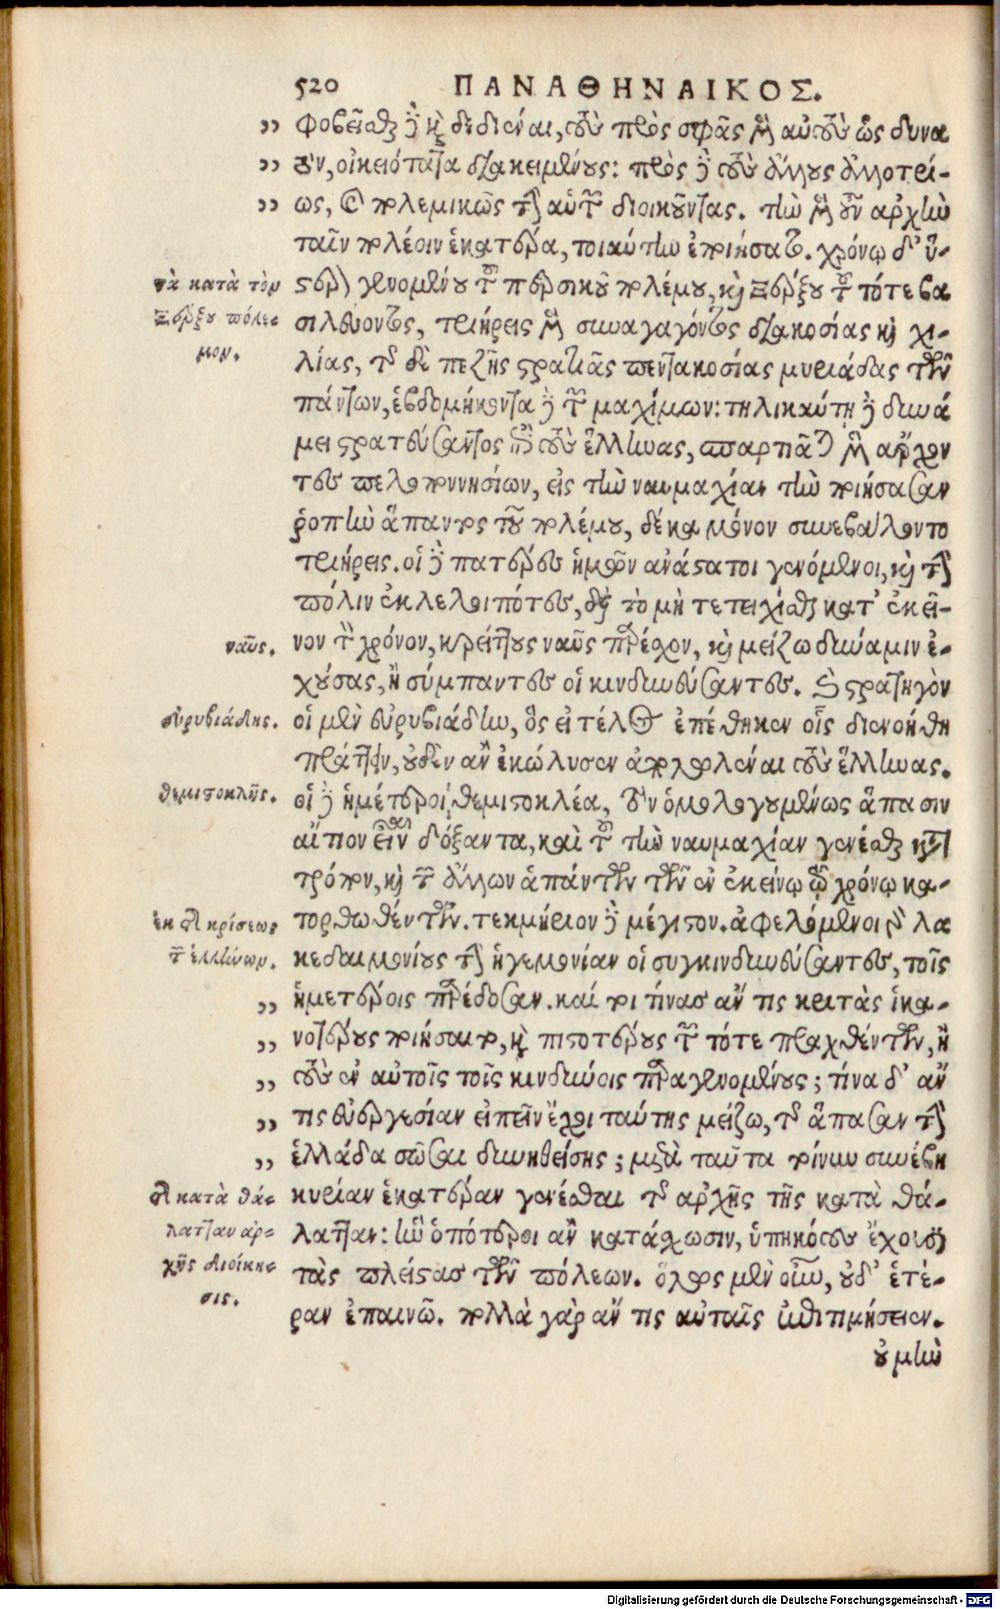 520 ΠΑΝΑΘΗΝΑΙΚΟΣ.
,, φοβεῖσθαι δὲ καὶ δεδιέναι, τοὺς πρὸς σφᾶς μὲν αὐτοὺς ὡς δυνα
,, τὸν, οἰκειότατα διακειμένους: πρὸς δὲ τοὺς ἄλλους ἀλλοτρί-
,, ως, καὶ πολεμικῶς τὴν αὑτῶν διοικοῦντας. τὴν μὲν οὖν ἀρχὴν
ταῖν πολέοιν ἑκατέρα, τοιαύτην ἐποιήσατο. χρόνῳ δ' ὕ-
τὰ κατὰ τὸν στερον γενομένου τοῦ περσικοῦ πολέμου, καὶ Ξέρξου τοῦ τότε βα
Ξέρξου πόλε- σιλεύοντος, τριήρεις μὲν συναγαγόντος διακοσίας καὶ χι-
μον. λίας, τῆς δὲ πεζῆς στρατιᾶς πεντακοσίας μυριάδας τῶν
πάντων, ἑβδομήκοντα δὲ τῶν μαχίμων: τηλικαύτῃ δὲ δυνά
μει στρατεύσαντος ἐπὶ τοὺς ἕλληνας, σπαρτιᾶται μὲν ἄρχον
τες πελοποννησίων, εἰς τὴν ναυμαχίαν τὴν ποιήσασαν
ῥοπὴν ἅπαντος τοῦ πολέμου, δέκα μόνον συνεβάλοντο
τριήρεις. οἱ δὲ πατέρες ἡμῶν ἀνάστατοι γενόμενοι, καὶ τὴν
πόλιν ἐκλελοιπότες, διὰ τὸ μὴ τετειχίσθαι κατ' ἐκεῖ-
ναῦς. νον τὸν χρόνον, κρείττους ναῦς παρέσχον, καὶ μείζω δύναμιν ἐ-
χούσας, ἢ σύμπαντες οἱ κινδυνεύσαντες. καὶ στρατηγὸν
εὐρυβιάδης. οἱ μὲν εὐρυβιάδην, ὃς εἰ τέλος ἐπέθηκεν οἷς διενοήθη
πράττειν, οὐδὲν ἂν ἐκώλυσεν ἀπολωλέναι τοὺς ἕλληνας.
θεμιστοκλῆς. οἱ δὲ ἡμέτεροι, θεμιστοκλέα, τὸν ὁμολογουμένως ἅπασιν
αἴτιον εἶναι δόξαντα, καὶ τοῦ τὴν ναυμαχίαν γενέσθαι κατὰ
τρόπον, καὶ τῶν ἄλλων ἁπάντων τῶν ἐν ἐκείνῳ τῷ χρόνῳ κα-
ἐκ τῆς κρίσεως τορθωθέντων. τεκμήριον δὲ μέγιστον. ἀφελόμενοι γὰρ λα
τῶν ἑλλήνων. κεδαιμονίους τὴν ἡγεμονίαν οἱ συγκινδυνεύσαντες, τοῖς
,, ἡμετέροις παρέδοσαν. καί τοι τίνας ἄν τις κριτὰς ἱκα-
,, νωτέρους ποιήσαιτο, καὶ πιστοτέρους τῶν τότε πραχθέντων, ἢ
,, τοὺς ἐν αὐτοῖς τοῖς κινδύνοις παραγενομένους; τίνα δ' ἄν
,, τις εὐεργεσίαν εἰπεῖν ἔχοι ταύτης μείζω, τῆς ἅπασαν τὴν
,, ἑλλάδα σῶσαι δυνηθείσης; μετὰ ταῦτα τοίνυν συνέβη
τῆς κατὰ θά- κυρίαν ἑκατέραν γενέσθαι τῆς ἀρχῆς τῆς κατὰ θά-
λατταν ἀρ- λατταν: ἣν ὁπότεροι ἂν κατάσχωσιν, ὑπηκόους ἔχουσι
χῆς διοίκη- τὰς πλείστας τῶν πόλεων. ὅλως μὲν οὖν, οὐδ' ἑτέ-
σις. ραν ἐπαινῶ. πολλὰ γὰρ ἄν τις αὐταῖς ἐπιτιμήσειεν.
οὐ μὴν
Digitalisierung gefördert durch die Deutsche Forschungsgemeinschaft - DFG